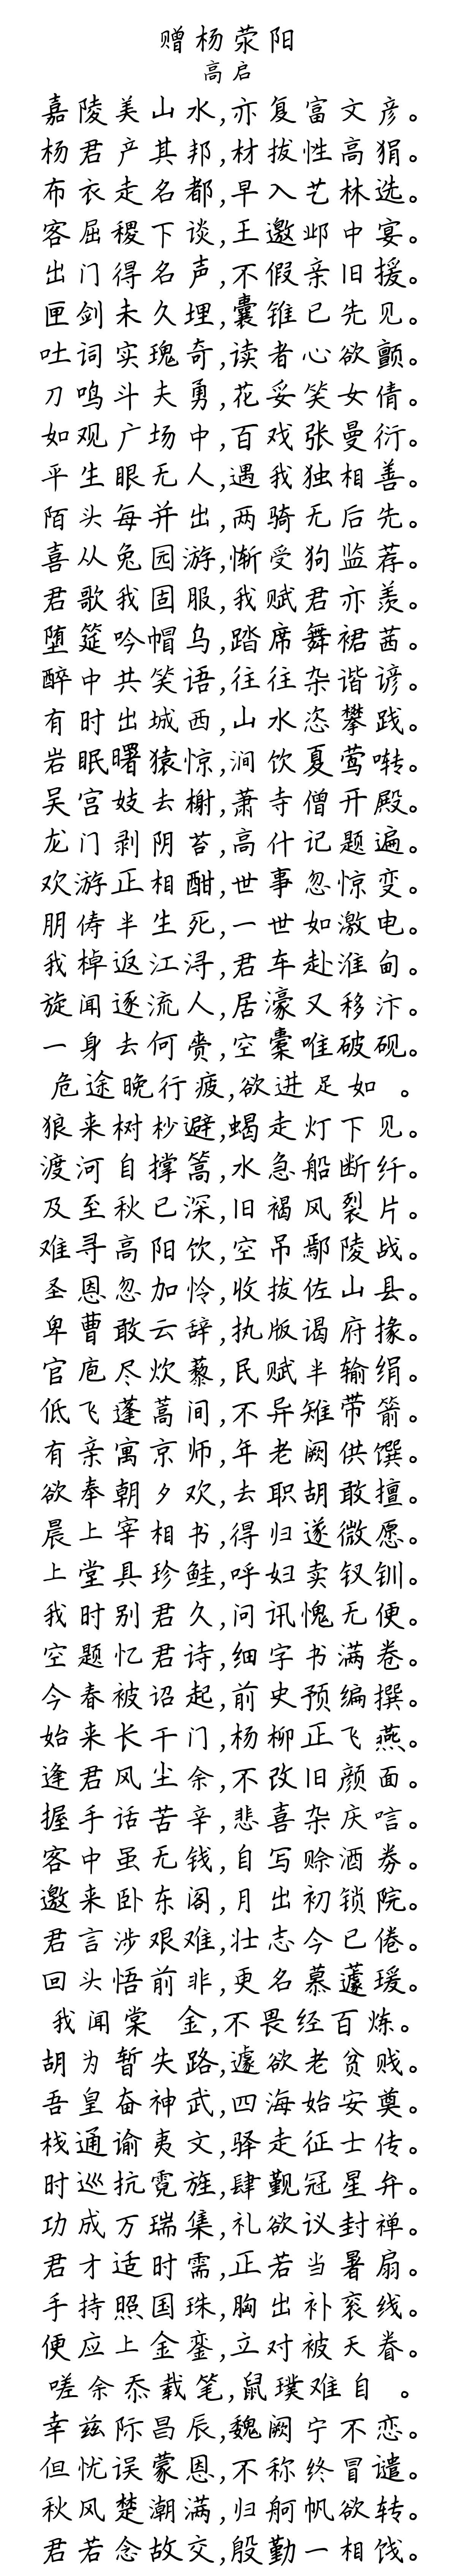 赠杨荥阳
高启
嘉陵美山水,亦复富文彦。
杨君产其邦,材拔性高狷。
布衣走名都,早入艺林选。
客屈稷下谈,王邀邺中宴。
出门得名声,不假亲旧援。
匣剑未久埋,囊锥已先见。
吐词实瑰奇,读者心欲颤。
刀鸣斗夫勇,花妥笑女倩。
如观广场中,百戏张曼衍。
平生眼无人,遇我独相善。
陌头每并出,两骑无后先。
喜从兔园游,惭受狗监荐。
君歌我固服,我赋君亦羡。
堕筵吟帽乌,踏席舞裙茜。
醉中共笑语,往往杂谐谚。
有时出城西,山水恣攀践。
岩眠曙猿惊,涧饮夏莺啭。
吴宫妓去榭,萧寺僧开殿。
龙门剥阴苔,高什记题遍。
欢游正相酣,世事忽惊变。
朋俦半生死,一世如激电。
我棹返江浔,君车赴淮甸。
旋闻逐流人,居濠又移汴。
一身去何赍,空橐唯破砚。
危途晚行疲,欲进足如 。
狼来树杪避,蝎走灯下见。
渡河自撑篙,水急船断纤。
及至秋已深,旧褐风裂片。
难寻高阳饮,空吊鄢陵战。
圣恩忽加怜,收拔佐山县。
卑曹敢云辞,执版谒府掾。
官庖尽炊藜,民赋半输绢。
低飞蓬蒿间,不异雉带箭。
有亲寓京师,年老阙供馔。
欲奉朝夕欢,去职胡敢擅。
晨上宰相书,得归遂微愿。
上堂具珍鲑,呼妇卖钗钏。
我时别君久,问讯愧无便。
空题忆君诗,细字书满卷。
今春被诏起,前史预编撰。
始来长干门,杨柳正飞燕。
逢君风尘余,不改旧颜面。
握手话苦辛,悲喜杂庆唁。
客中虽无钱,自写赊酒券。
邀来卧东阁,月出初锁院。
君言涉艰难,壮志今已倦。
回头悟前非,更名慕蘧瑗。
我闻棠 金,不畏经百炼。
胡为暂失路,遽欲老贫贱。
吾皇奋神武,四海始安奠。
栈通谕夷文,驿走征士传。
时巡抗霓旌,肆觐冠星弁。
功成万瑞集,礼欲议封禅。
君才适时需,正若当暑扇。
手持照国珠,胸出补衮线。
便应上金銮,立对被天眷。
嗟余忝载笔,鼠璞难自 。
幸兹际昌辰,魏阙宁不恋。
但忧误蒙恩,不称终冒谴。
秋风楚潮满,归舸帆欲转。
君若念故交,殷勤一相饯。